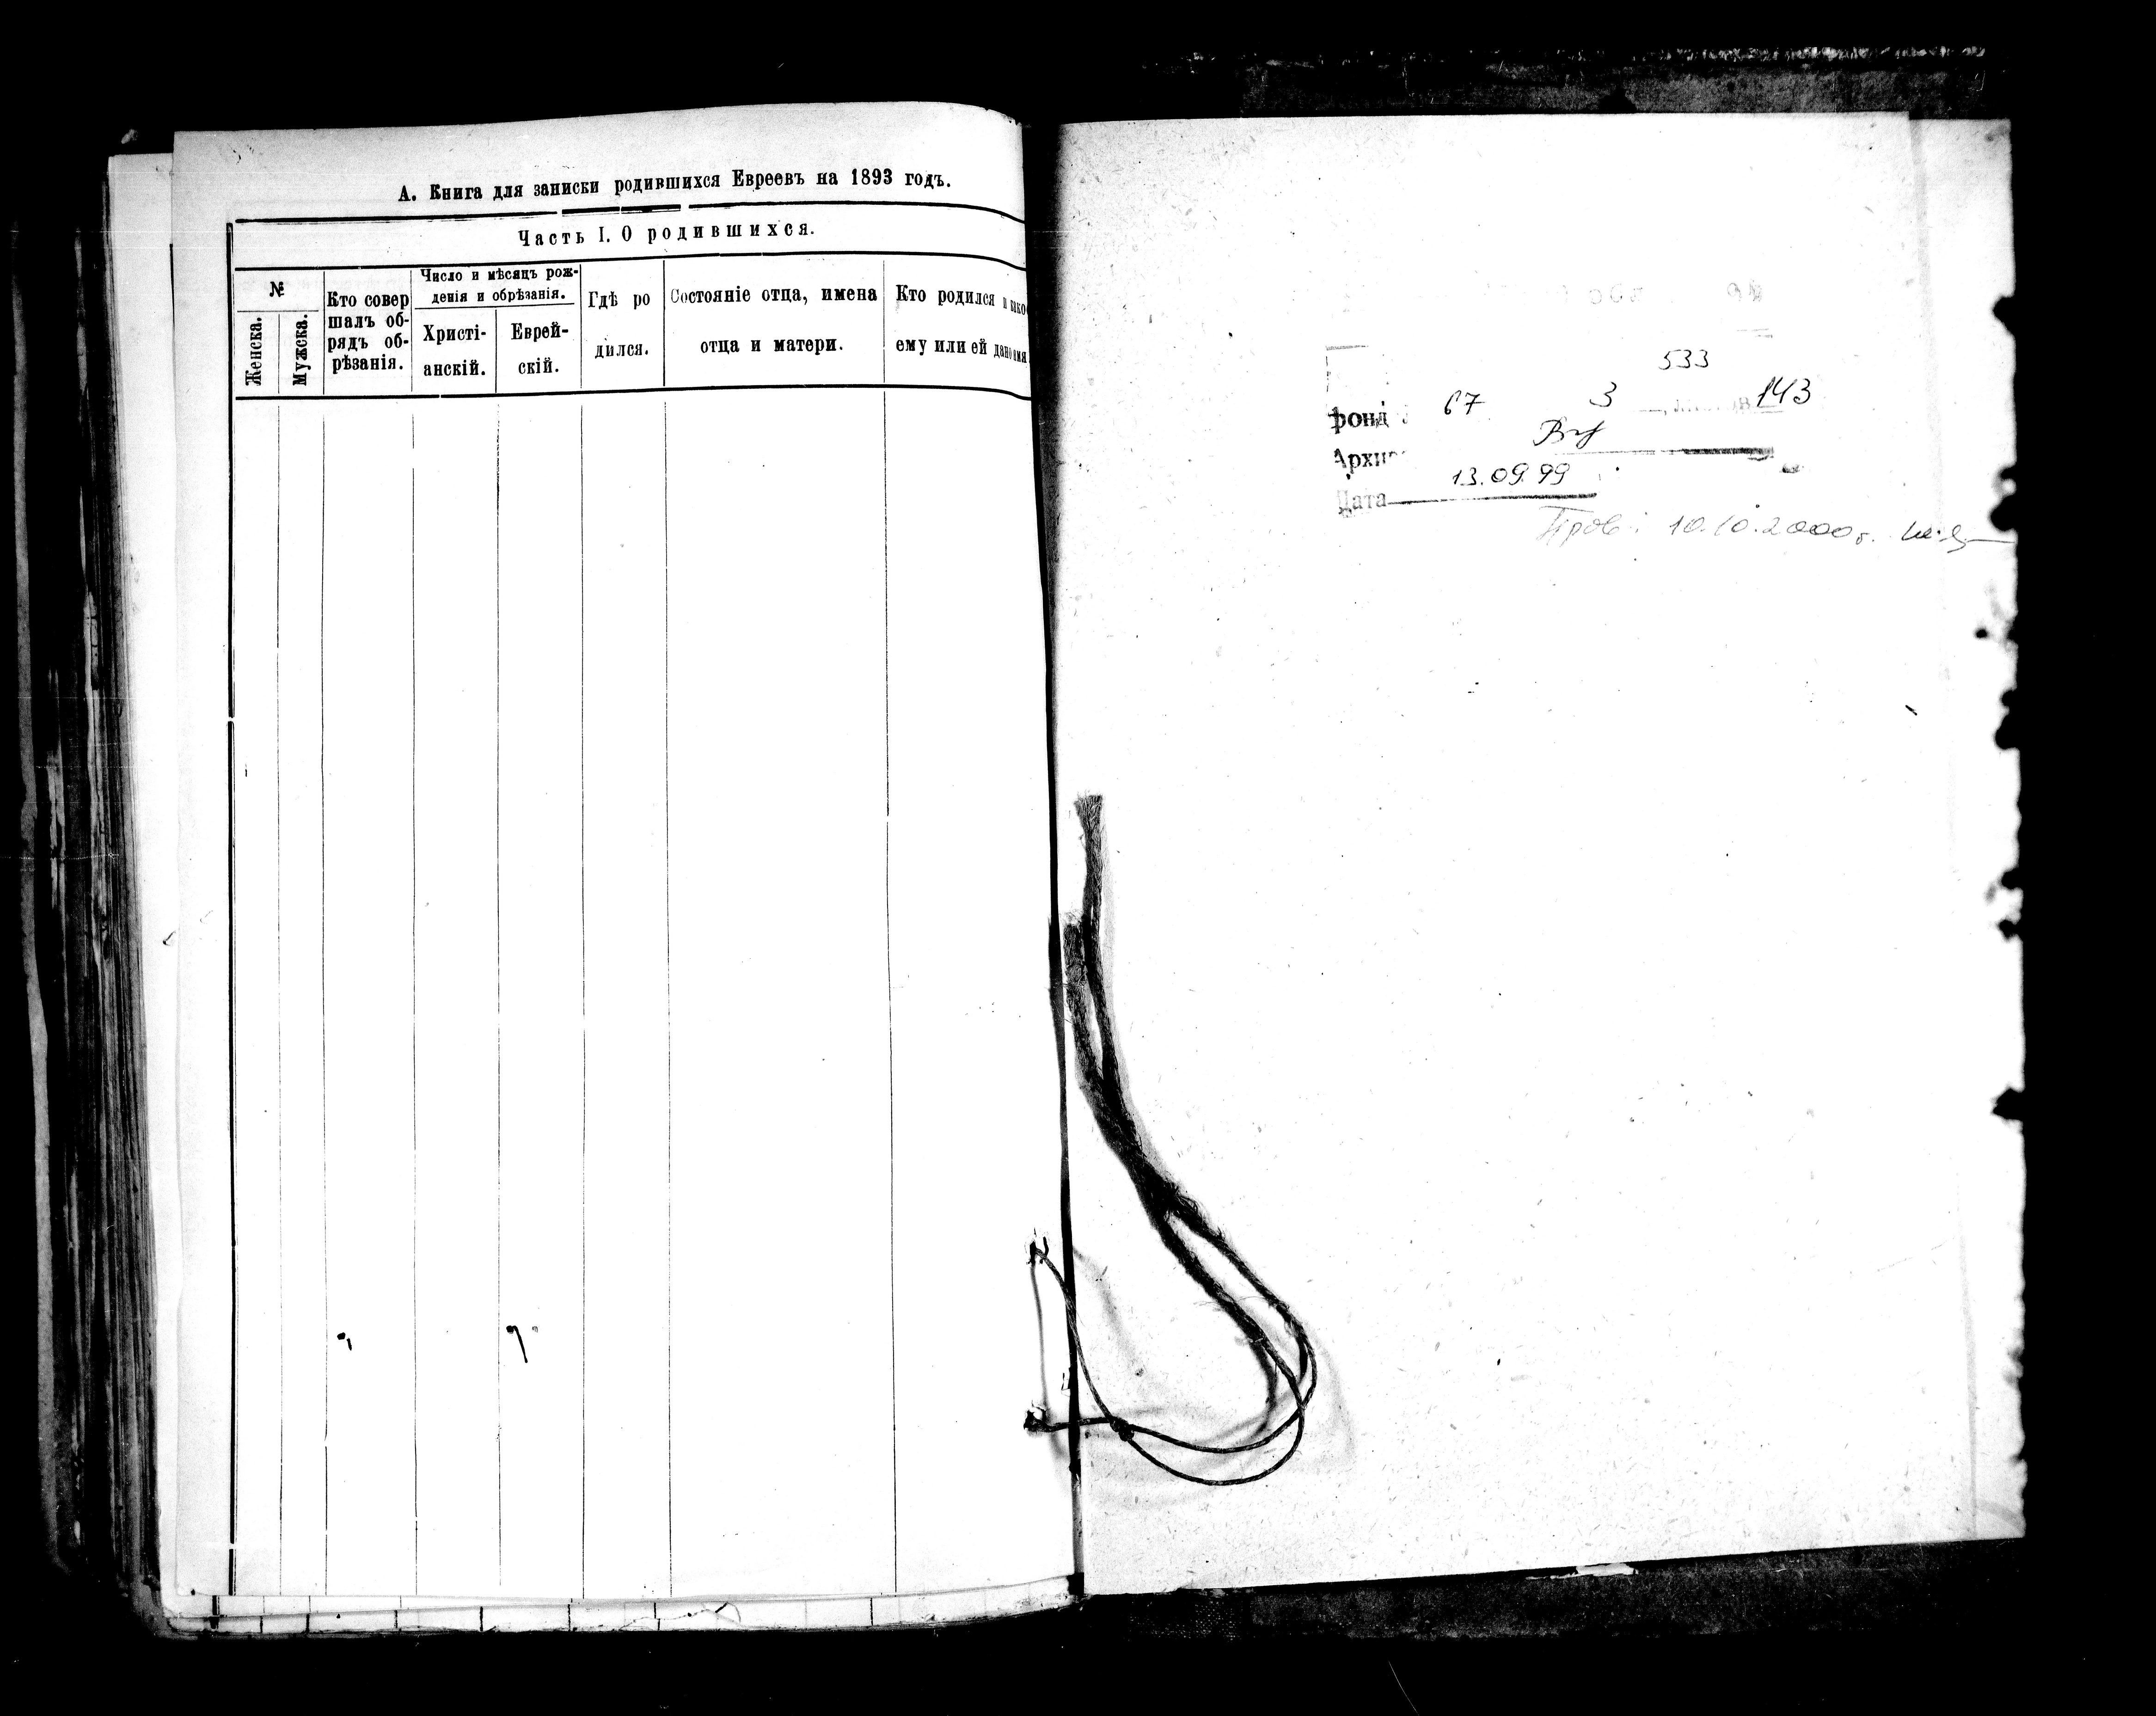 А. Книга для записки родившихся Евреевъ на 1893 годъ.
Часть I. О родившихся.
№
Женска.
Мужска.
Кто совер
шалъ об-
рядъ об-
рѣзанія.
Число и мѣсяцъ рож-
денія и обрѣзанія.
Христі-
анскій.
Еврей-
скій.
Гдѣ ро
дился.
Состояніе отца, имена
отца и матери.
Кто родился и како
ему или ей дано имя
533
фонд 67 3 143
Архи
Дата 13.09.99
Пров. 10.10.2000г.